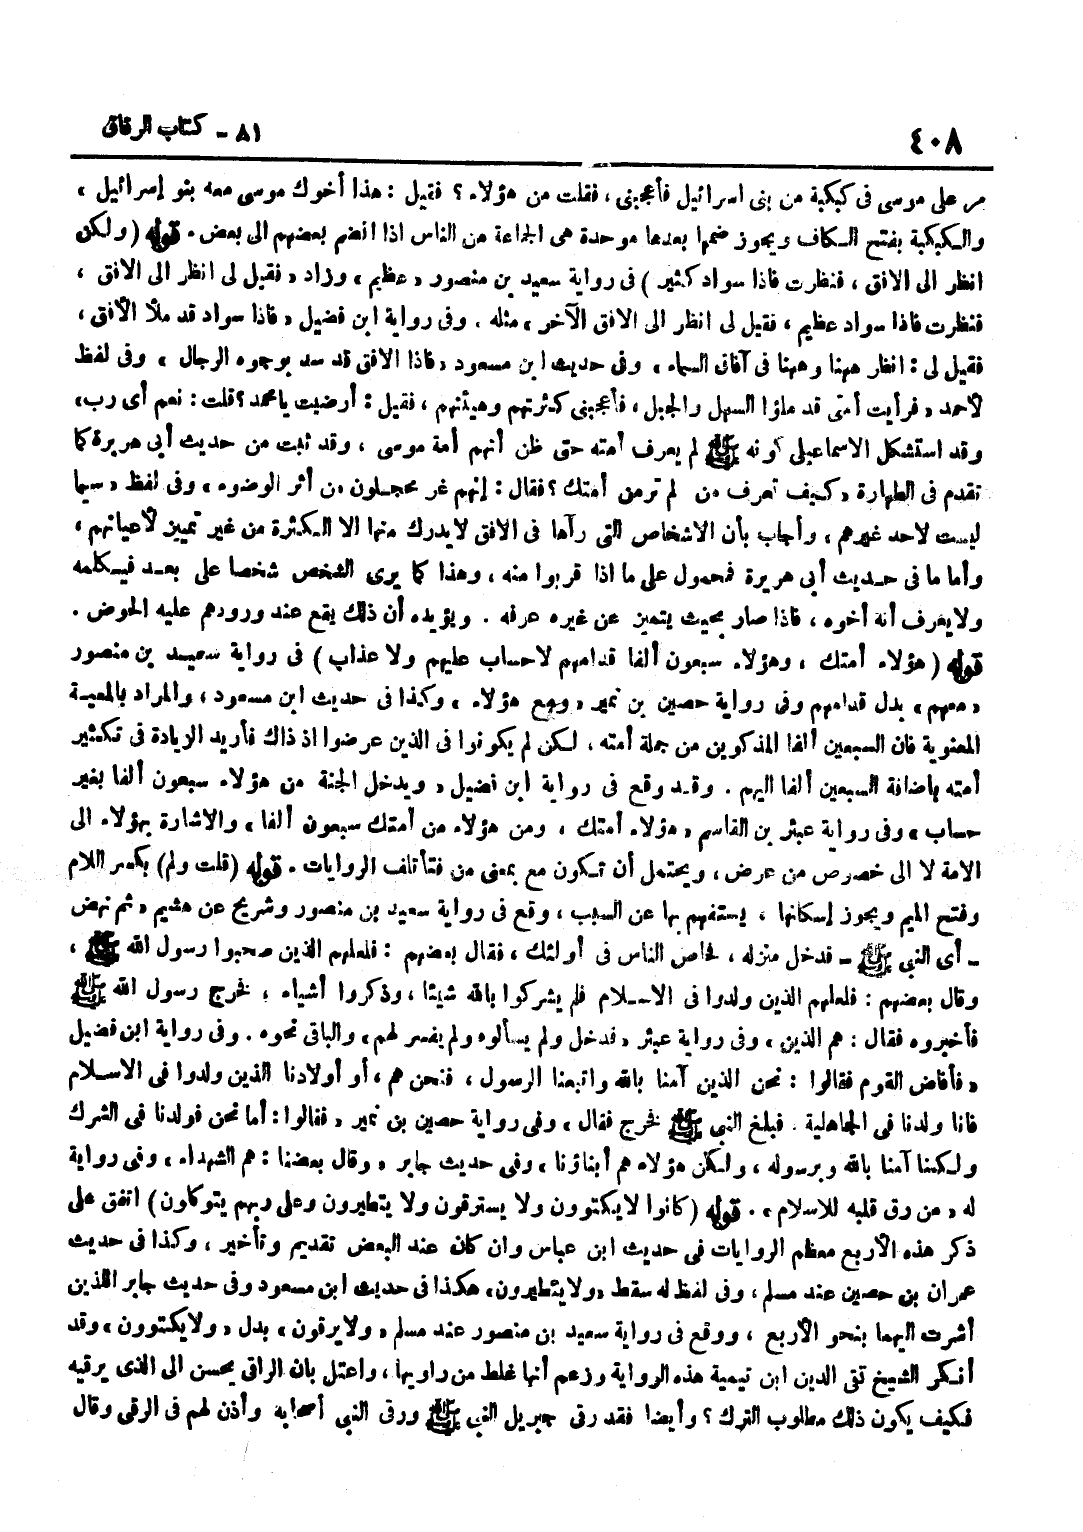 ٤٠٨
٨١ - كتاب الرقاق
مر على موسى فى كبكبة من بنى اسرائيل فأعجبنى ، فقلت من هؤلاء ؟ فقيل : هذا أخوك موسى معه بنو إسرائيل ،
والكبكبة بفتح الكاف ويجوز ضمها بعدها موحدة هى الجماعة من الناس اذا انضم بعضهم الى بعض . قوله ( ولكن
انظر الى الافق ، فنظرت فاذا سواد كثير ) فى رواية سعيد بن منصور « عظيم » وزاد « فقيل لى انظر الى الافق ،
فنظرت فاذا سواد عظيم ، فقيل لى انظر الى الافق الآخر » مثله . وفى رواية ابن فضيل « فاذا سواد قد ملأ الأفق ،
فقيل لى : انظر ههنا وههنا فى آفاق السماء » وفى حديث ابن مسعود « فاذا الافق قد سد بوجوه الرجال » وفى لفظ
لأحمد « فرأيت أمتى قد ملؤا السهل والجبل ، فأعجبنى كثرتهم وهيئتهم ، فقيل : أرضيت يا محمد ؟ قلت : نعم أى رب»
وقد استشكل الاسماعيلى كونه ﷺ لم يعرف أمته حتى ظن أنهم أمة موسى ، وقد ثبت من حديث أبى هريرة كما
تقدم فى الطهارة « كيف تعرف من لم تر من أمتك ؟ فقال : إنهم غر محجلون من أثر الوضوء » وفى لفظ « سيما
ليست لاحد غيرهم » وأجاب بأن الاشخاص التى رآها فى الافق لا يدرك منها الا الكثرة من غير تمييز لأعيانهم ،
وأما ما فى حديث أبى هريرة فمحمول على ما اذا قربوا منه ، وهذا كما يرى الشخص شخصا على بعد فيكلمه
ولا يعرف أنه أخوه ، فاذا صار بحيث يتميز عن غيره عرفه . ويؤيده أن ذلك يقع عند ورودهم عليه الحوض .
قوله ( هؤلاء أمتك ، وهؤلاء سبعون ألفا قدامهم لا حساب عليهم ولا عذاب ) فى رواية سعيد بن منصور
« معهم » بدل قدامهم وفى رواية حصين بن نمير « ومع هؤلاء » وكذا فى حديث ابن مسعود ، والمراد بالمعية
المعنوية فان السبعين ألفا المذكورين من جملة أمته ، لكن لم يكونوا فى الذين عرضوا اذ ذاك فأريد الزيادة فى تكثير
أمته باضافة السبعين ألفا اليهم . وقد وقع فى رواية ابن فضيل « ويدخل الجنة من هؤلاء سبعون ألفا بغير
حساب » وفى رواية عبثر بن القاسم « هؤلاء أمتك ، ومن هؤلاء من أمتك سبعون ألفا » والاشارة بهؤلاء الى
الامة لا الى خصوص من عرض ، ويحتمل أن تكون مع بمعنى من فتأتلف الروايات . قوله ( قلت ولم ) بكسر اللام
وفتح الميم ويجوز إسكانها ، يستفهم بها عن السبب ، وقع فى رواية سعيد بن منصور وشريح عن هشيم « ثم نهض
- أى النبى ﷺ - فدخل منزله ، فخاض الناس فى أولئك ، فقال بعضهم : فلعلهم الذين صحبوا رسول الله ﷺ ،
وقال بعضهم : فلعلهم الذين ولدوا فى الاسلام فلم يشركوا بالله شيئا ، وذكروا أشياء ، فخرج رسول الله ﷺ
فأخبروه فقال : هم الذين » وفى رواية عبثر « فدخل ولم يسألوه ولم يفسر لهم » والباقى نحوه . وفى رواية ابن فضيل
« فأفاض القوم فقالوا : نحن الذين آمنا بالله واتبعنا الرسول ، فنحن هم ، أو أولادنا الذين ولدوا فى الاسلام
فانا ولدنا فى الجاهلية . فبلغ النبى ﷺ فخرج فقال » وفى رواية حصين بن نمير « فقالوا : أما نحن فولدنا فى الشرك
ولكننا آمنا بالله وبرسوله ، ولكن هؤلاء هم أبناؤنا » وفى حديث جابر « وقال بعضنا : هم الشهداء » وفى رواية
له « من رق قلبه للاسلام » . قوله ( كانوا لا يكتوون ولا يسترقون ولا يتطيرون وعلى ربهم يتوكلون ) اتفق على
ذكر هذه الأربع معظم الروايات فى حديث ابن عباس وان كان عند البعض تقديم وتأخير ، وكذا فى حديث
عمران بن حصين عند مسلم ، وفى لفظ له سقط «ولا يتطيرون» هكذا فى حديث ابن مسعود وفى حديث جابر اللذين
أشرت اليهما بنحو الأربع ، ووقع فى رواية سعيد بن منصور عند مسلم « ولا يرقون » بدل « ولا يكتوون » وقد
أنكر الشيخ تقى الدين ابن تيمية هذه الرواية وزعم أنها غلط من راويها ، واعتل بان الراقى يحسن الى الذى يرقيه
فكيف يكون ذلك مطلوب الترك ؟ وأيضا فقد رقى جبريل النبى ﷺ ورقى النبى أصحابه وأذن لهم فى الرقى وقال